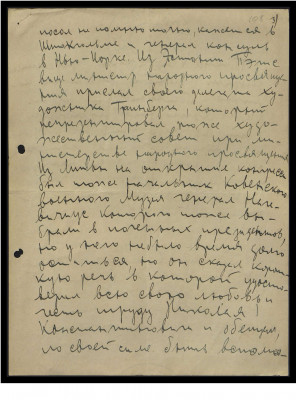 3)
посол не помню точно, кажется в
Штокгольме и генерал консул
в Нью-Йорке. Из Эстонии Вице
министр народного просвеще-
ния прислал своего делегата ху-
дожника Гринберга, который
репрезентировал тоже худо-
жественный совет при ми-
нистерстве народного просвещения
Из Литвы на открытие конгресса
был тоже начальник Ковенского
военного Музея генерал Наг-
вичус которого тоже вы-
брали в почетных президентов,
но у него небыло время долго
остаться но он сказал корот-
кую речь в которой удосто-
верил всю свою любовь и
честь труду Николая
Константиновича и обещал,
по своей силе быть вспомо-